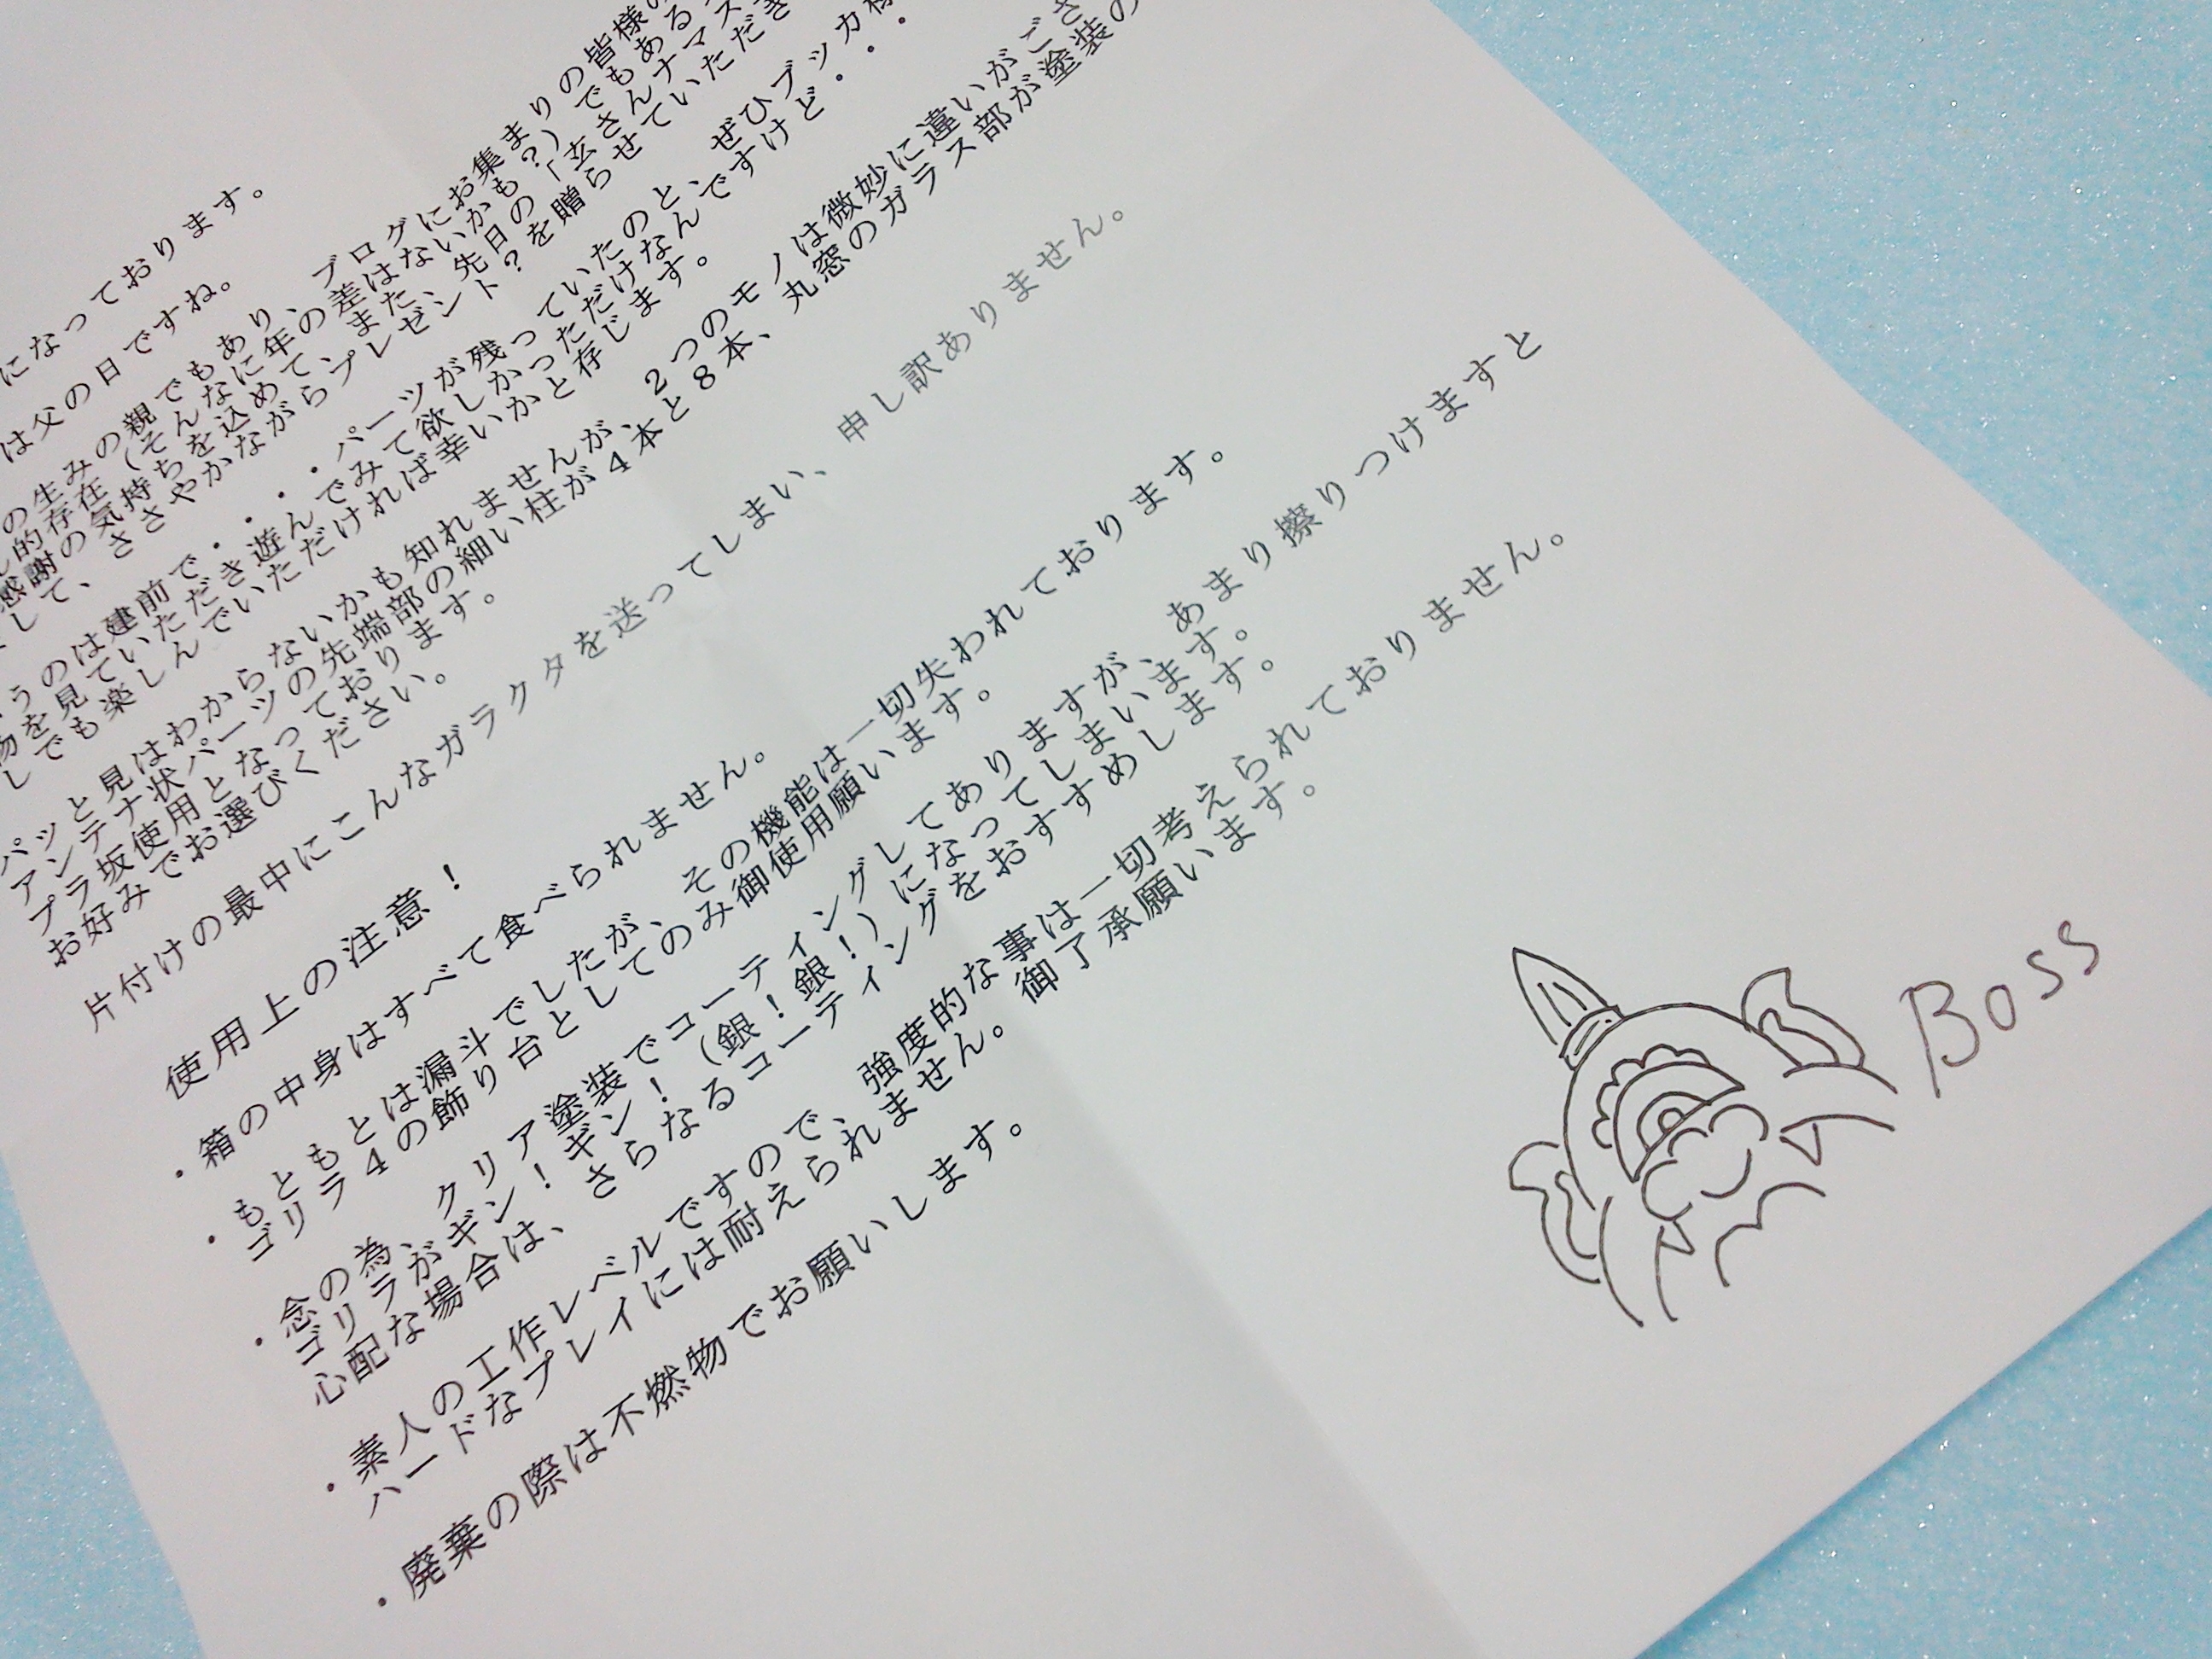 になっております。
は父の日ですね。
の生みの親でもあり、ブログにお集まりの皆様の
的存在(そんなに年の差はないかも?)でもある
感謝の気持ちを込めて、また、先日の「玄さんナマズ
して、ささやかながらプレゼント?を贈らせていただき
うのは建前で・・・パーツが残っていたのと、ぜひブッカ様
物を見ていただき遊んでみて欲しかっただけなんですけど・・・
しでも楽しんでいただければ幸いかと存じます。
パッと見はわからないかも知れませんが、2つのモノは微妙に違いがござ
アンテナ状パーツの先端部の細い柱が4本と8本、丸窓のガラス部が塗装の
プラ坂使用となっております。
お好みでお選びください。
片付けの最中にこんなガラクタを送ってしまい、申し訳ありません。
使用上の注意!
・箱の中身はすべて食べられません。
・もともとは漏斗でしたが、その機能は一切失われております。
ゴリラ4の飾り台としてのみ御使用願います。
・念の為、クリア塗装でコーティングしてありますが、あまり擦りつけますと
ゴリラがギン!ギン!(銀!銀!)になってしまいます。
心配な場合は、さらなるコーティングをおすすめします。
・素人の工作レベルですので、強度的な事は一切考えられておりません。
ハードなプレイには耐えられません。御了承願います。
・廃棄の際は不燃物でお願いします。
Boss